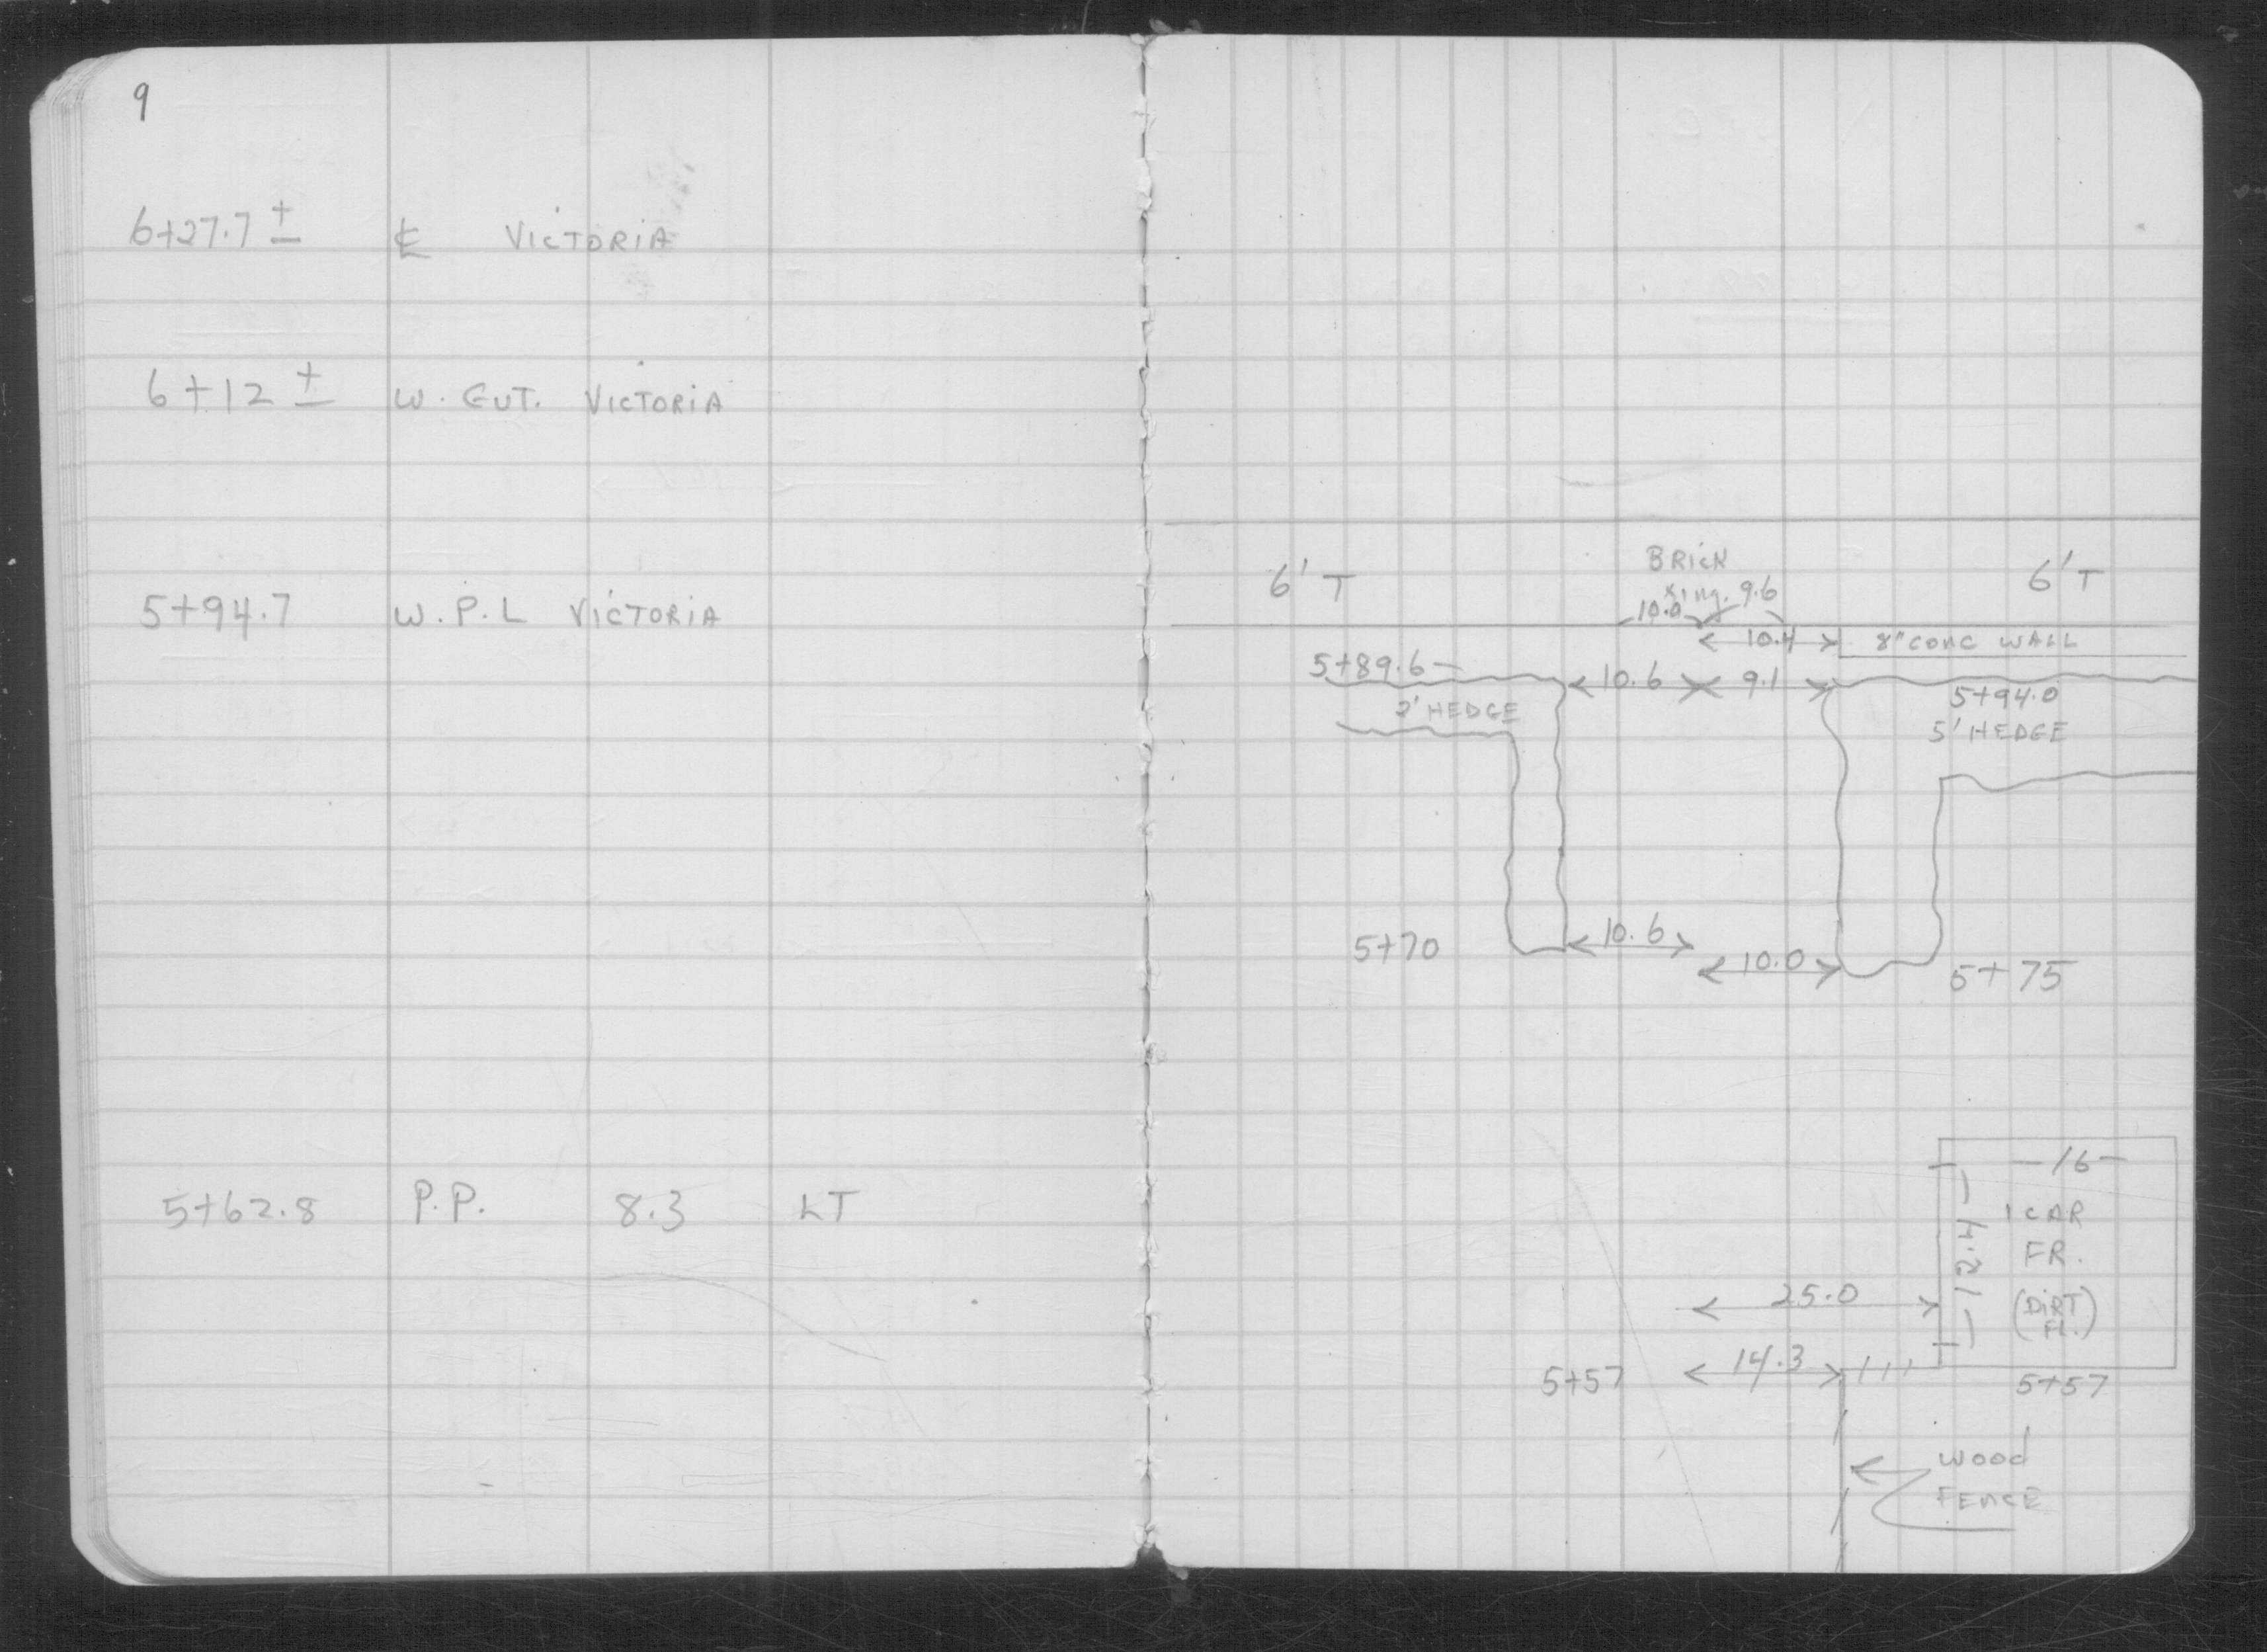 9
6+27.7 ± ℄ VICTORIA
6+12 ± W. GUT. VICTORIA
5+94.7 W.P.L VICTORIA
5+62.8 P.P. 8.3 LT
6' T BRICK 6' T
Xing. 9.6
10.0
10.4 8" CONC WALL
5+89.6
10.6 9.1
5+94.0
2' HEDGE
5' HEDGE
5+70 10.6
10.0 5+75
16
12.4
1 CAR
FR.
(DIRT
FL.)
25.0
14.3
5+57 5+57
WOOD
FENCE